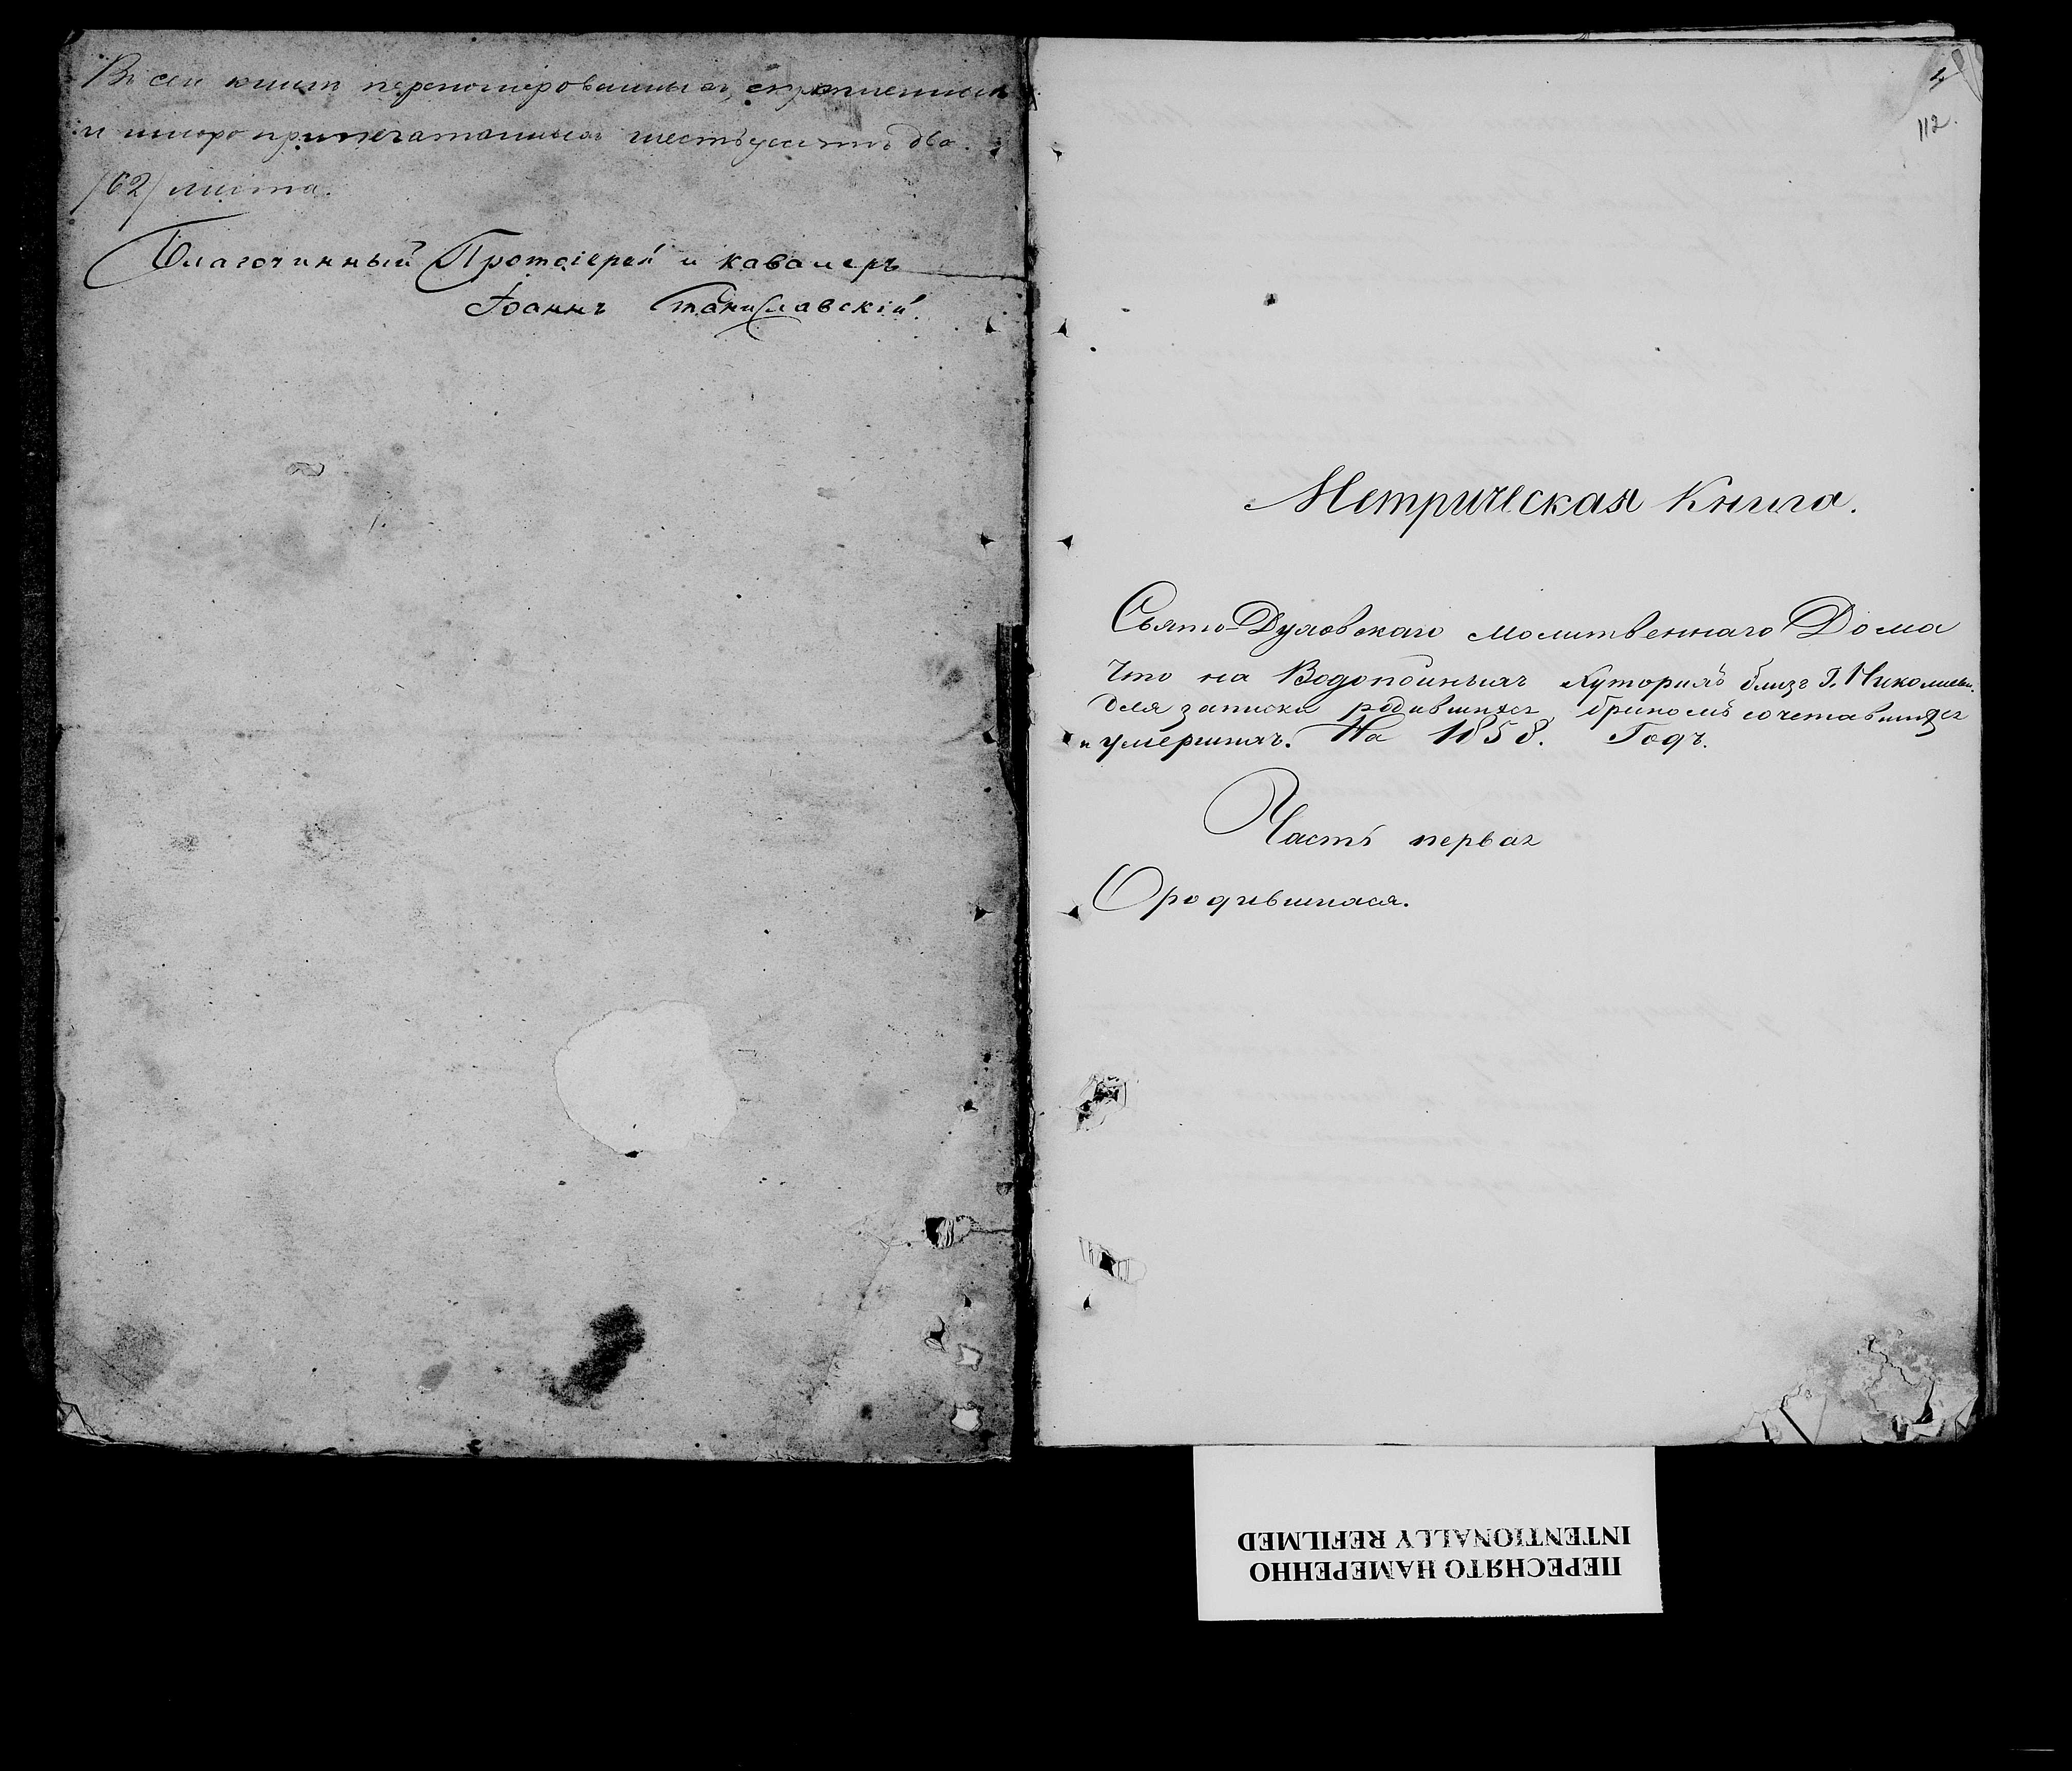 Въ сей книгѣ перенумерованныхъ, скрѣпленныхъ
и шнуроприпечатанныхъ шестьдесятъ два
/62/ листа.
Благочинный Протоіерей и кавалеръ
Іоаннъ Станиславскій.
112.
Метрическая Книга.
Свято-Духовскаго молитвеннаго Дома
Что на Водопойныхъ Хуторахъ близъ г. Николаева.
для записки родившихся, бракомъ сочетавшихся
и умершихъ. На 1858. Годъ.
Часть первая
О родившихся.
ПЕРЕСНЯТО НАМЕРЕННО
INTENTIONALLY REFILMED